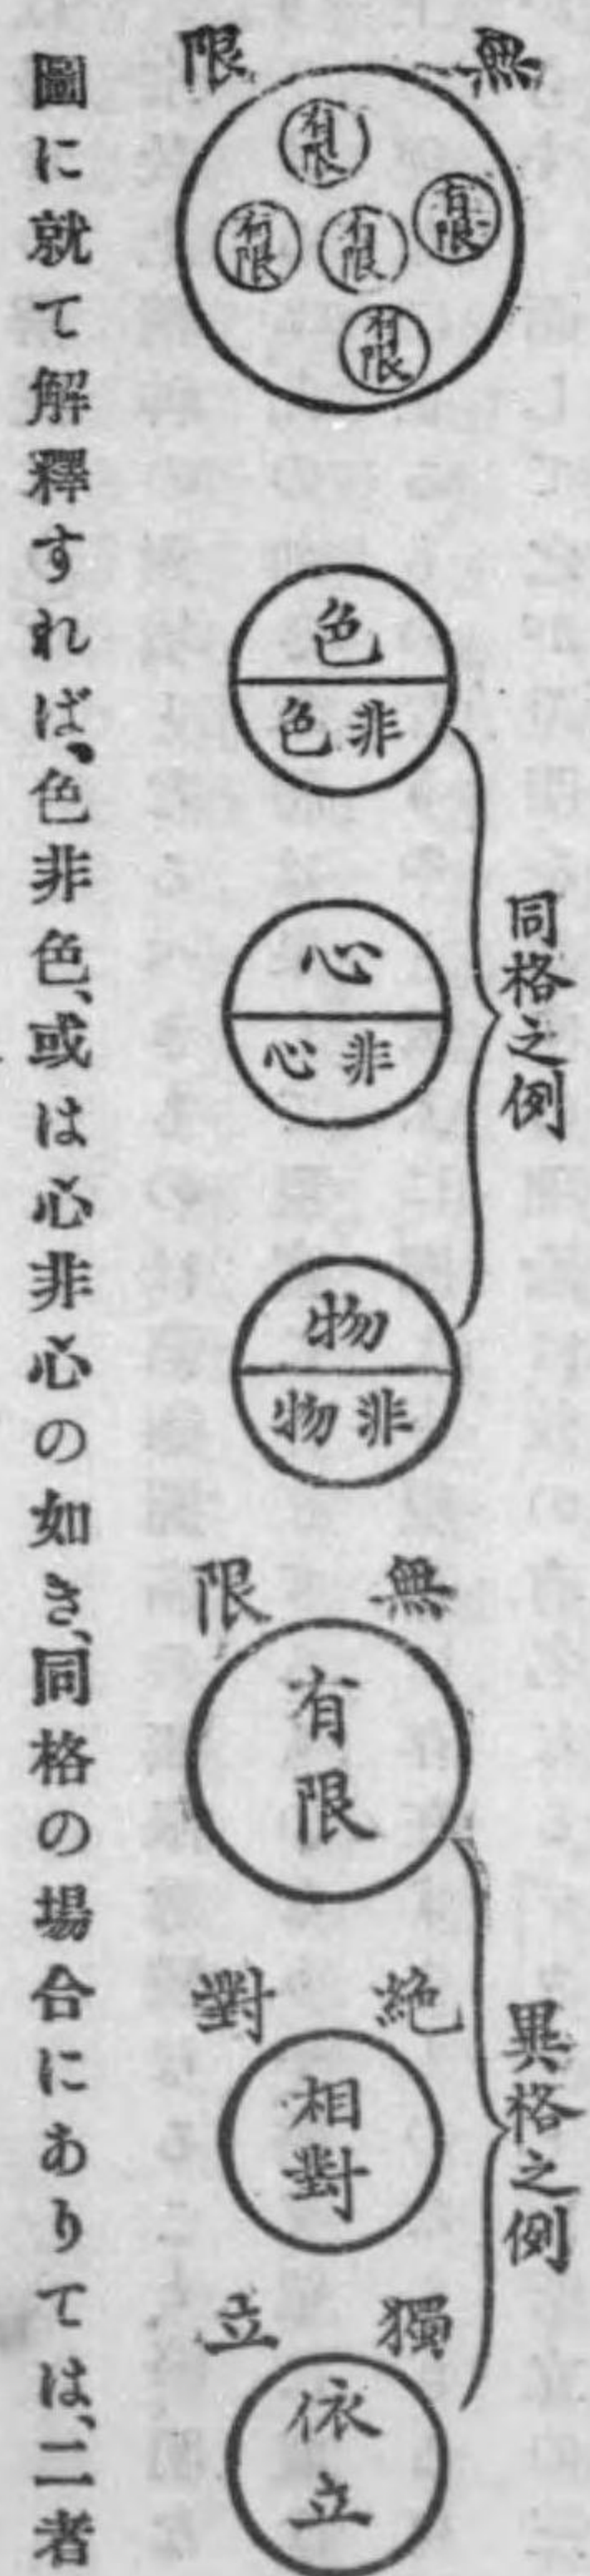 無限
有限
有限
有限
有限
有限
同格之例
色
非色
心
非心
物
非物
異格之例
無限
有限
絶對
相對
獨立
依立
圖に就て解釋すれば、色非色、或は心非心の如き、同格の場合にありては、二者